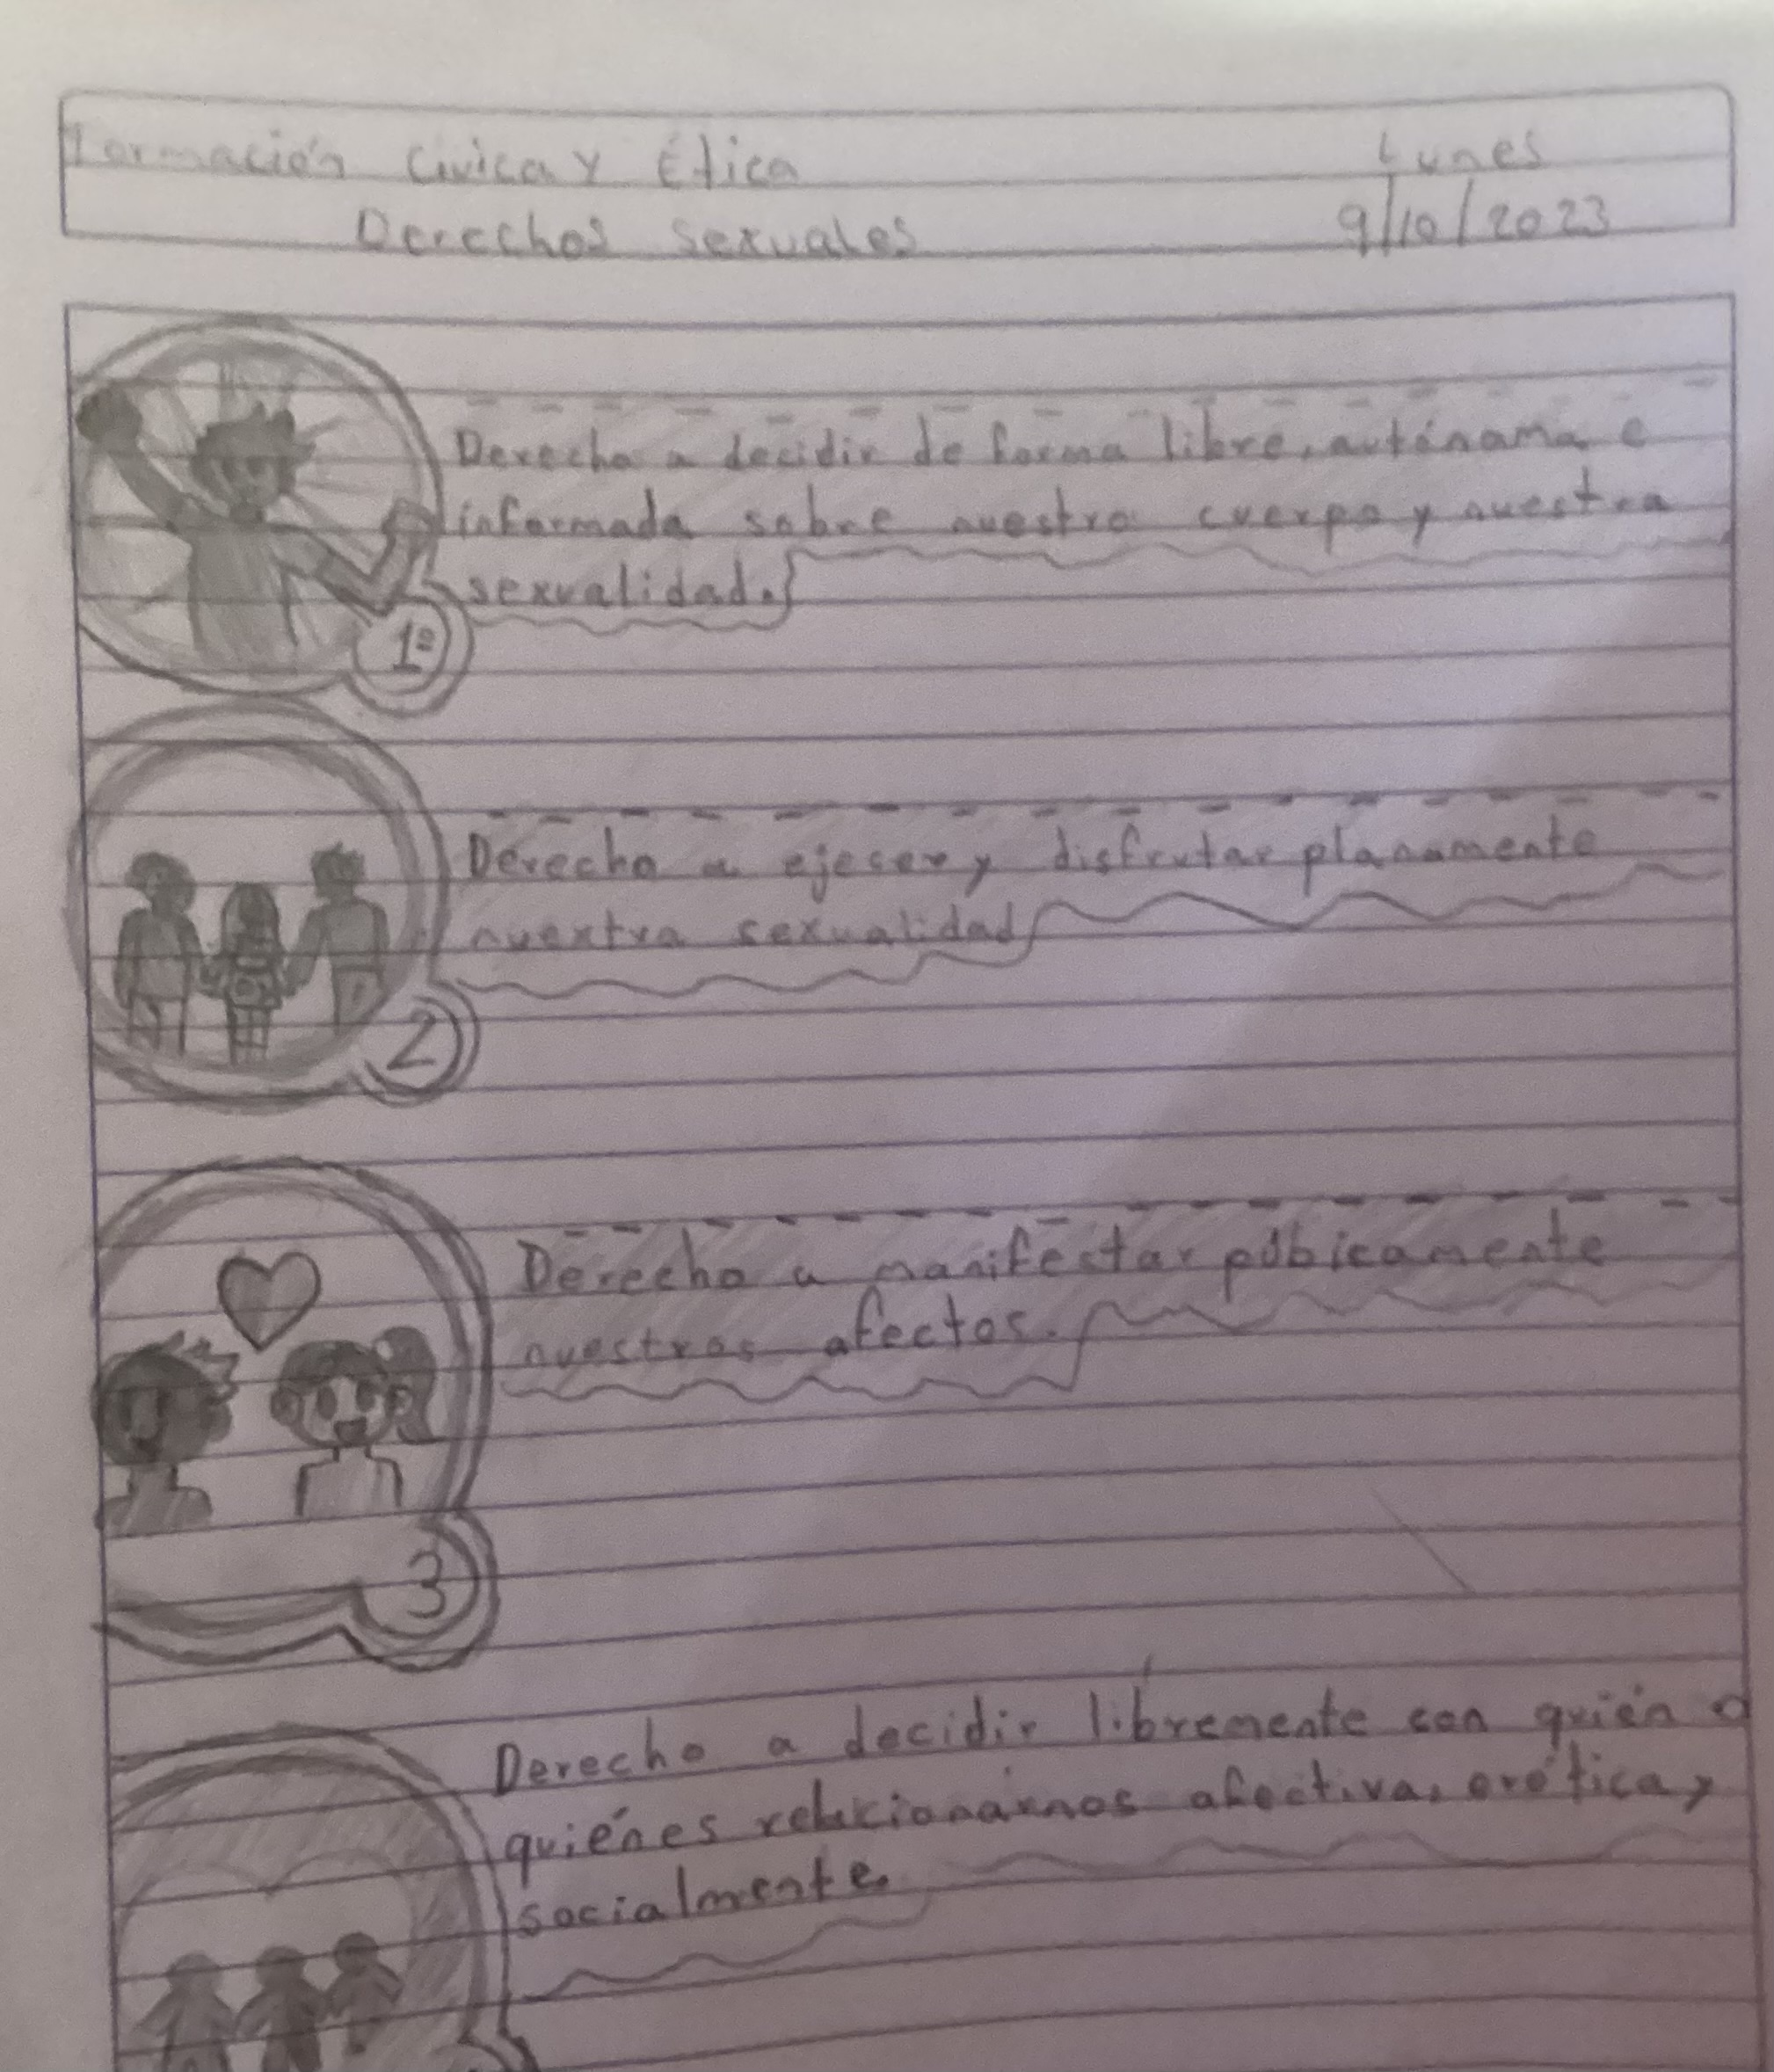 Formación Civica y Ética
Lunes
Derechos sexuales
9/10/2023
Derecho a decidir de forma libre, autónama e
informada sobre nuestro cuerpo y nuestra
sexualidad.
1º
Derecho a ejecer y disfrutar planamente
nuextra sexualidad
2
Derecho a manifestar púbicamente
nuestros afectos.
3
Derecho a decidir libremente con quién o
quiénes relacionárnos afectiva, erótica y
socialmente.